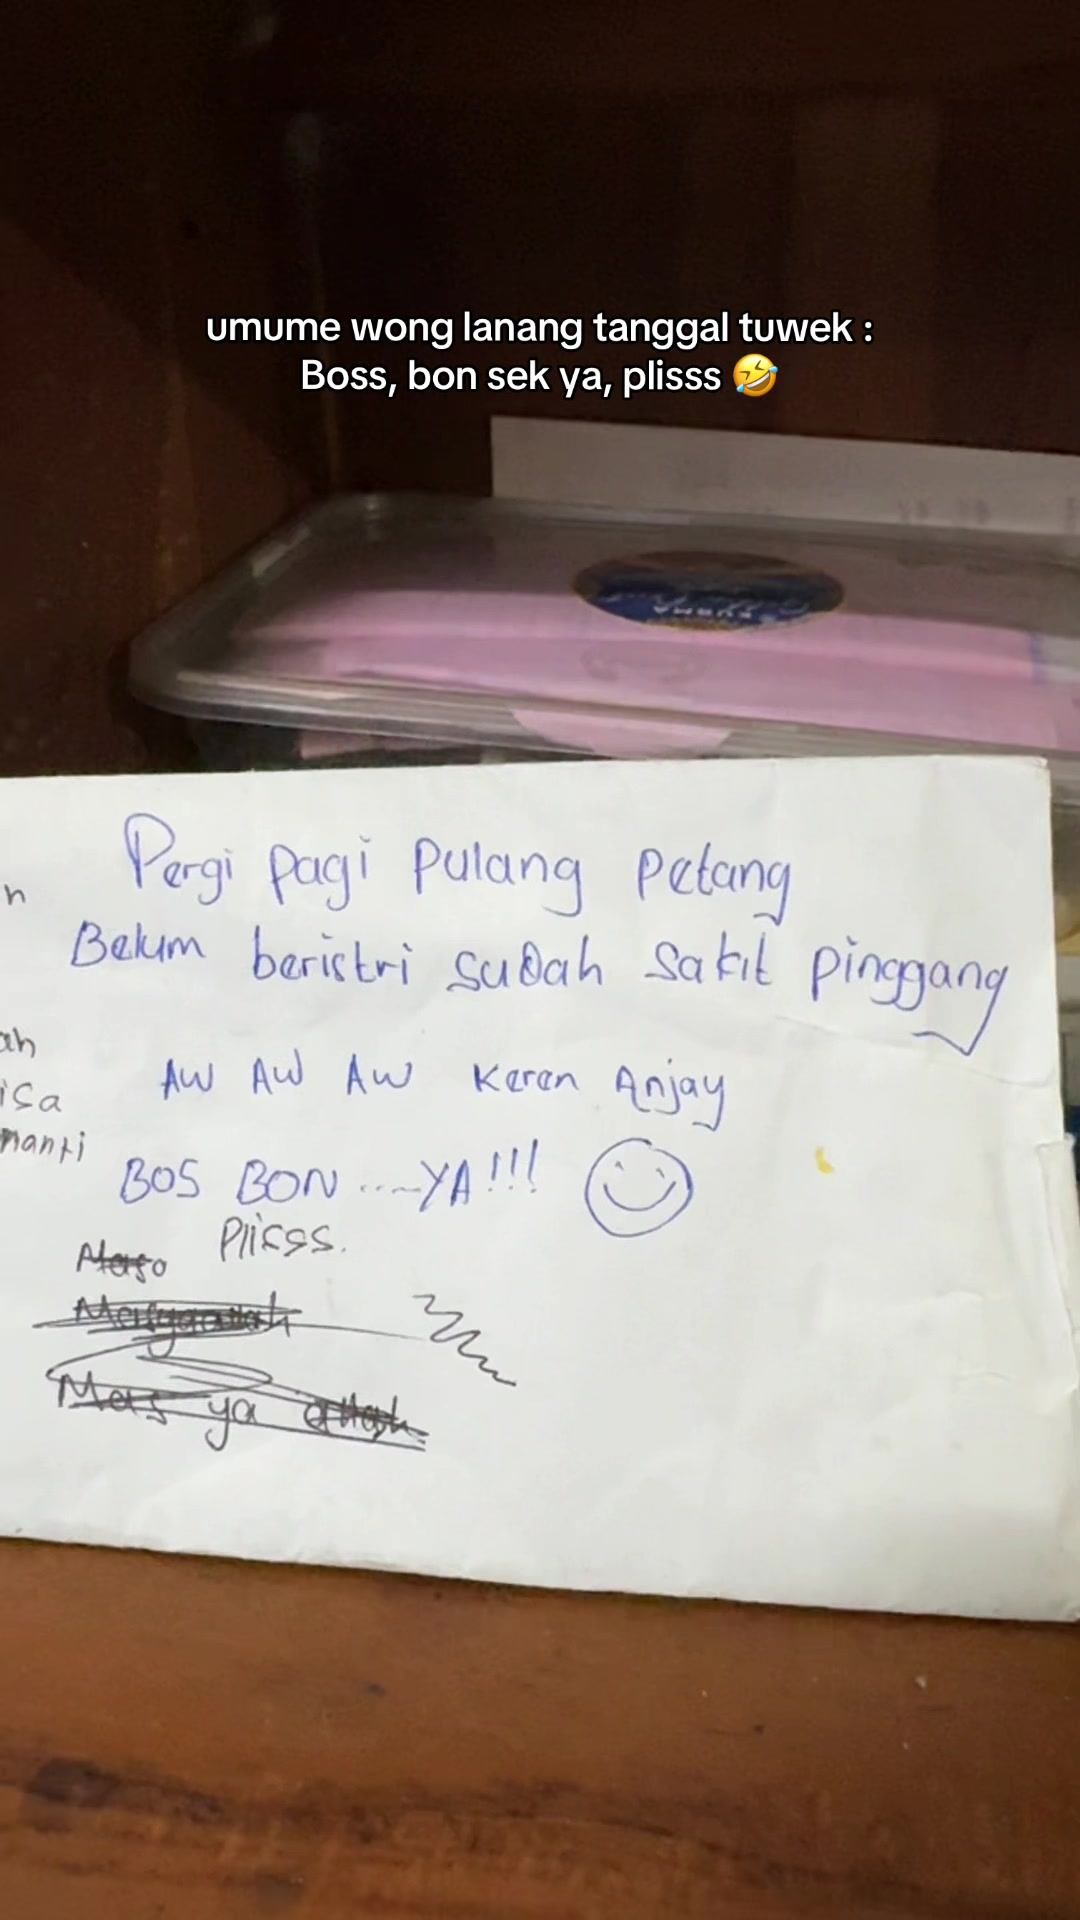 umume wong lanang tanggal tuwek :
Boss, bon sek ya, plisss 🤣
Pergi pagi pulang petang
n
Belum beristri sudah sakit pinggang
ah
AW AW AW Keren Anjay
isa
nanti
BOS BON ....-YA!!!
Plisss.
Mas ya allah